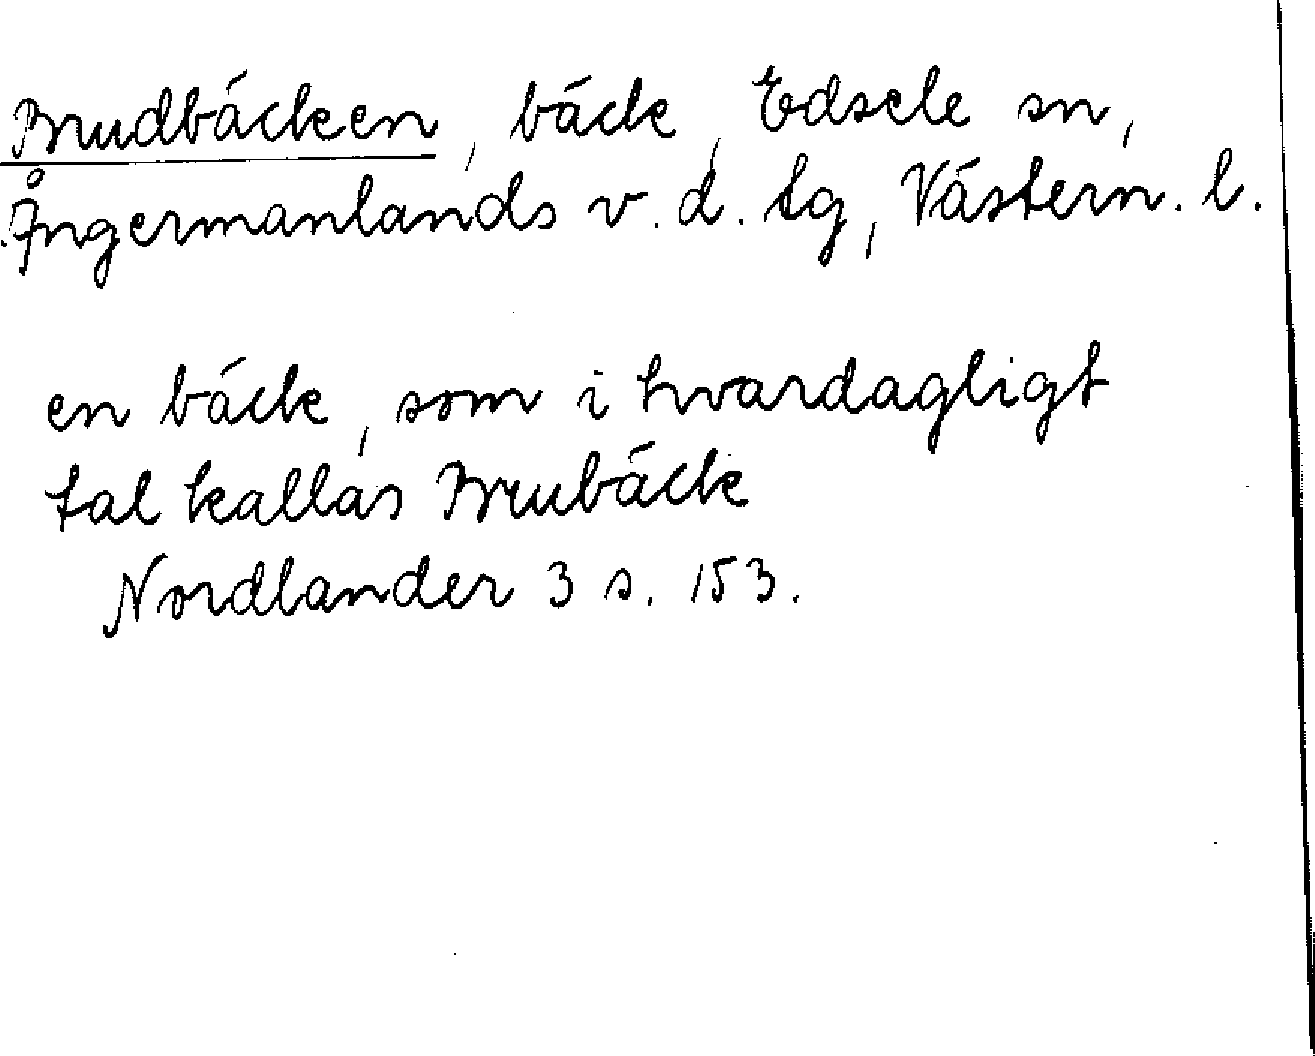 Brudbäcken, bäck, Edsele sn,
Ångermanlands v. d. tg, Västern. l.
en bäck, som i hvardagligt
tal kallas Brubäck
Nordlander 3 s. 153.